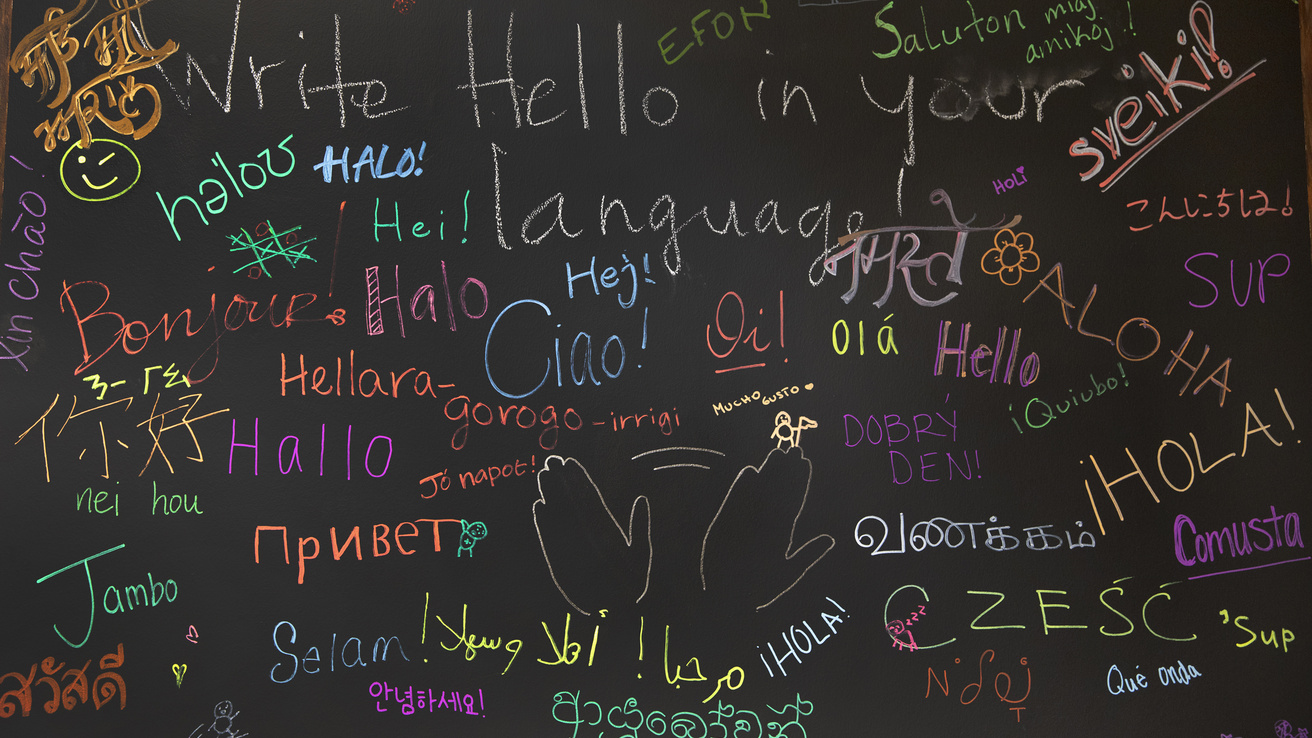 Write Hello in your
language!
EFON
Saluton miaj
amikoj!
sveiki!
Xin Chào!
halou
HALO!
Hei!
HOLi
こんにちは!
नमस्ते
SUP
Bonjour!
Halo
Hej!
Ciao!
Oi!
olá
Hello
ALOHA
Hellara-
gorogo-irrigi
MUCHO GUSTO
¡Quiubo!
你好
nei hou
Hallo
Jó napot!
DOBRÝ
DEN!
¡HOLA!
Привет
வணக்கம்
Comusta
Jambo
สวัสดี
Selam!
أهلا وسهلا!
مرحبا!
¡HOLA!
CZEŚĆ
'Sup
안녕하세요!
ආයුබෝවන්
Qué onda